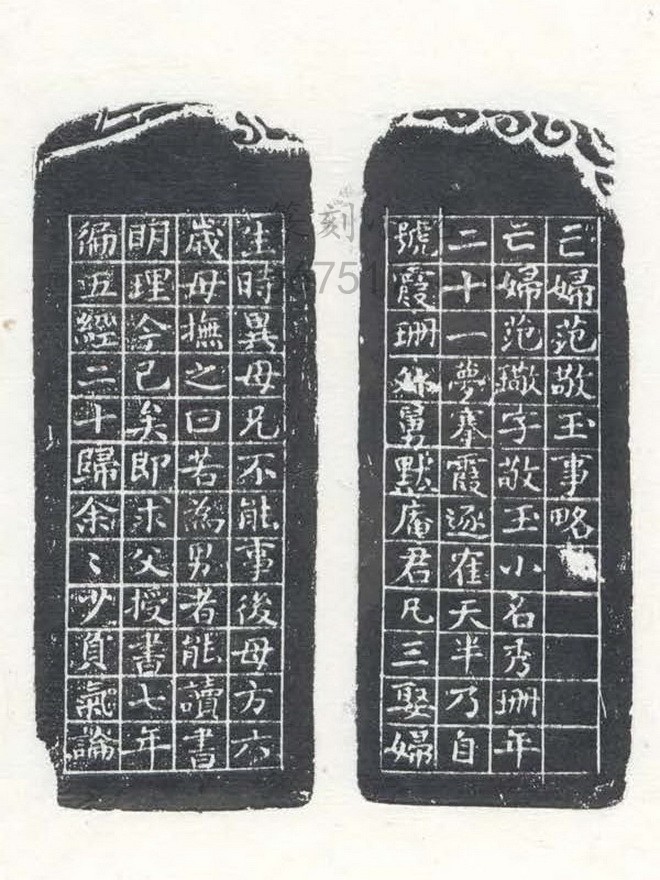 亡婦范敬玉事略
亡婦范璥字敬玉小名秀珊年
二十一夢搴霞逐寉天半乃自
號霞珊外舅默庵君凡三娶婦
生時異母兄不能事後母方六
歲母撫之曰若為男者能讀書
眀理今已矣即求父授書七年
徧五經二十歸余〻少負氣論